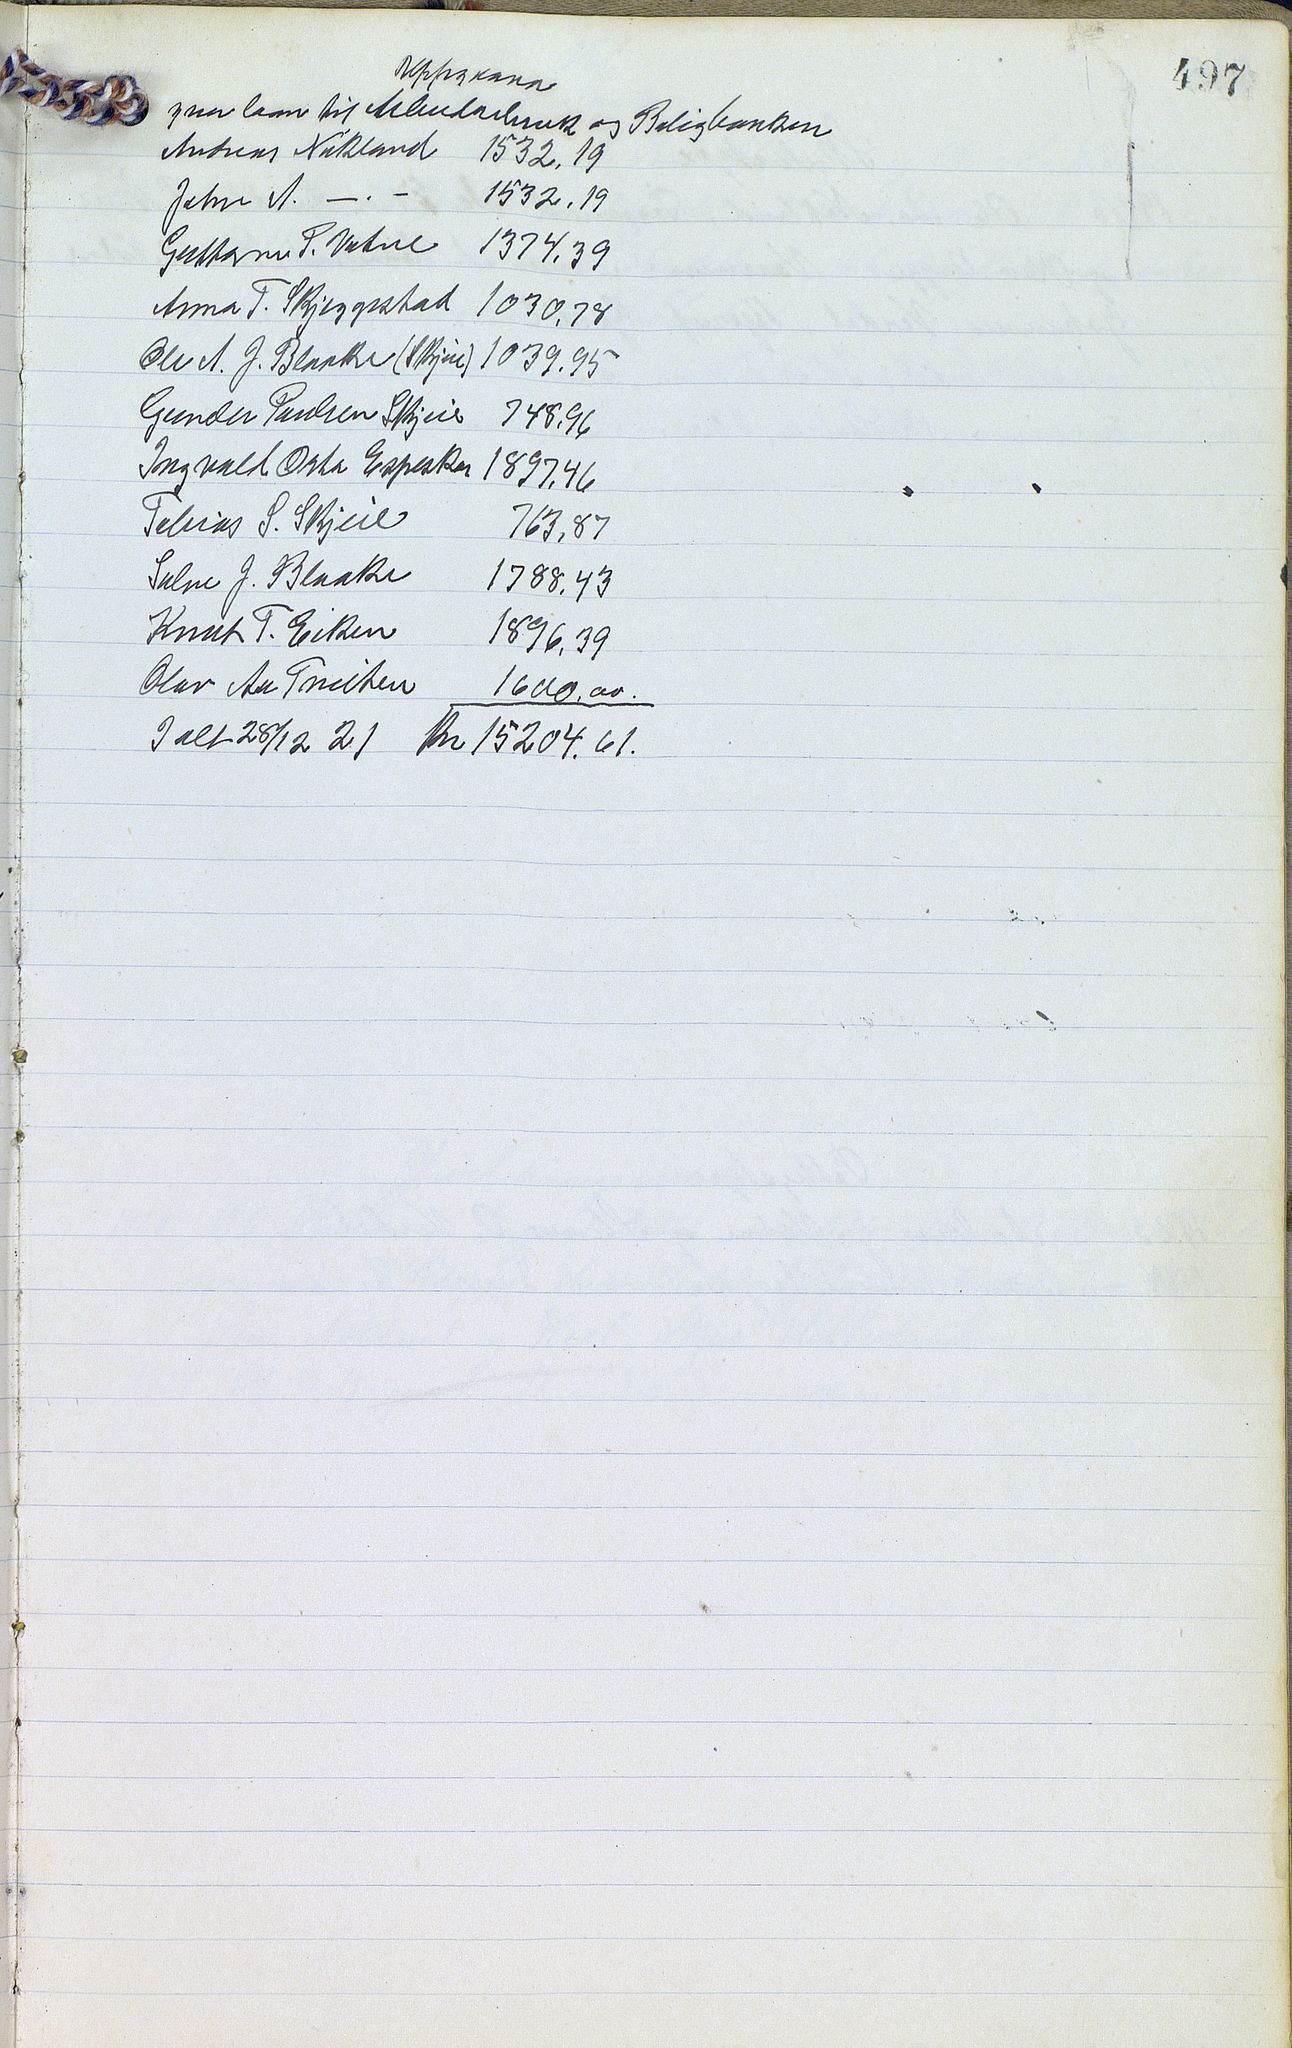 497
Oppgaava
yver laan til Arbeidarbruk og Boligbanken
Andreas Nökland 1532,19
Johne A. —.– 1532,19
Guttorm T. Vatne 1374,39
Anna T. Skjeggestad 1030,78
Ole A. J. Blaake (Skjeie) 1039,95
Gunder Paulsen Skjeie 748,96
Ingvald Osta Espesker 1897,46
Tobias S. Skjeie 763,87
Salve J. Blaake 1788,43
Knut T. Eiken 1896,39
Olav Aa Tveiten 1600,00.
Ialt 28/12 21 Kr 15204,61.